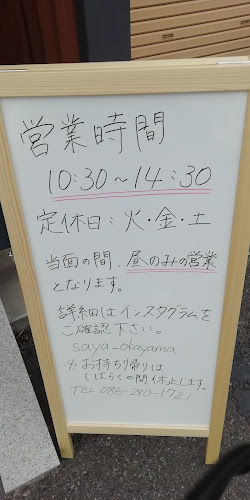 営業時間
10:30~14:30
定休日:火・金・土
当面の間、昼のみの営業
となります。
詳細はインスタグラムを
ご確認下さい。
saya_okayama
※お持ち帰りは
しばらくの間休止します。
TEL 086-280-1721